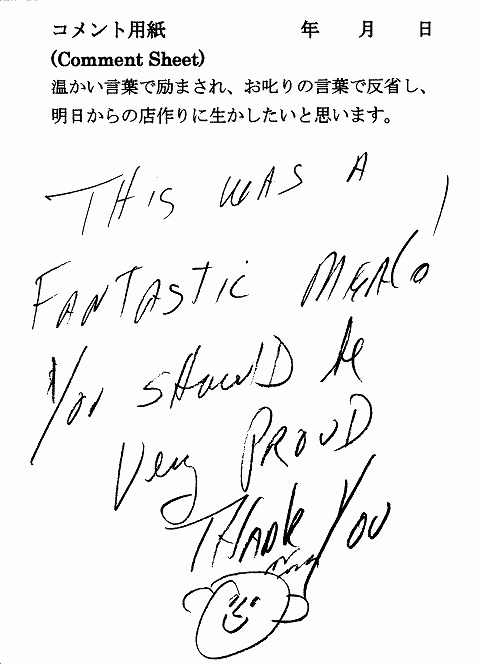 コメント用紙 年 月 日
(Comment Sheet)
温かい言葉で励まされ、お叱りの言葉で反省し、
明日からの店作りに生かしたいと思います。
THIS WAS A
FANTASTIC MEAL!
You SHOULD be
Very PROUD
THANK YOU